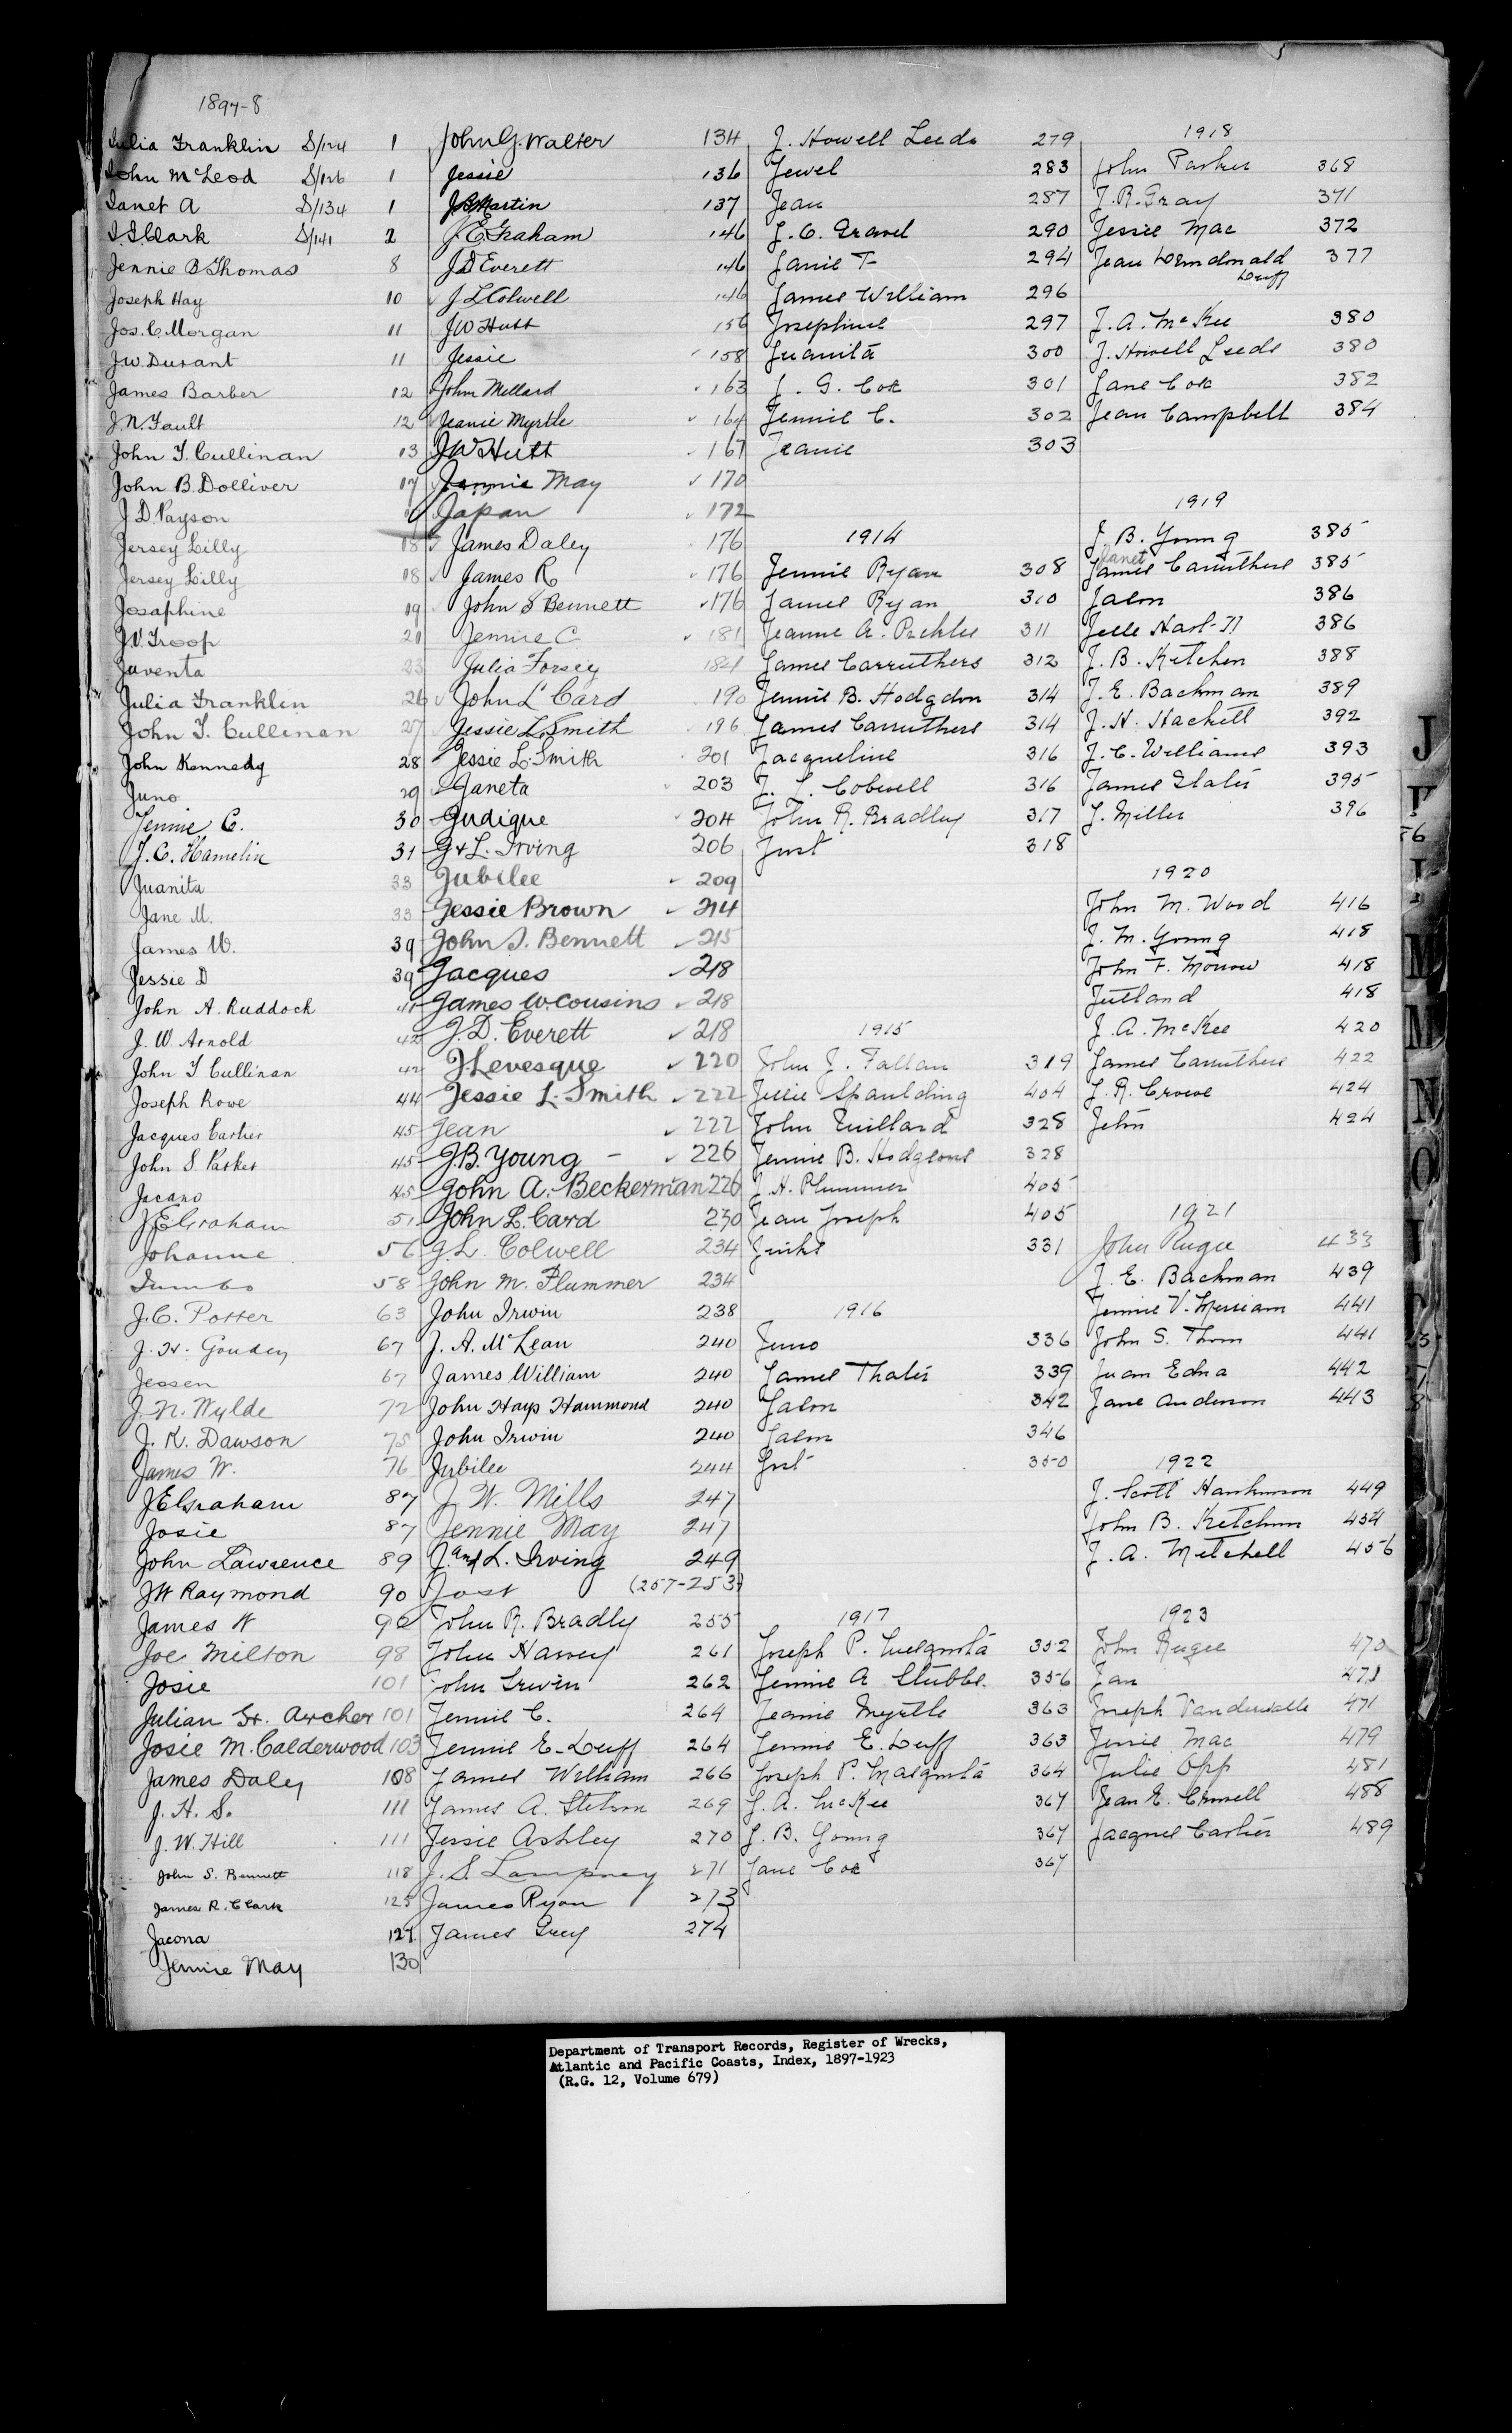 1897-8
Julia Franklin S/124 1
John McLeod S/126 1
Janet A S/134 1
J.S. Clark S/141 2
Jennie B Thomas 8
Joseph Hay 10
Jos. C. Morgan 11
J.W. Durant 11
James Barber 12
J.N. Fault 12
John T. Cullinan 13
John B. Dolliver 17
J.D. Payson
Jersey Lilly 18
Jersey Lilly 18
Josaphine 19
J.V. Troop 21
Juventa 23
Julia Franklin 26
John T. Cullinan 27
John Kennedy 28
Juno 29
Jennie C. 30
J.C. Hamelin 31
Juanita 33
Jane M. 33
James W. 39
Jessie D 39
John A. Ruddock 41
J. W. Arnold 42
John T Cullinan 42
Joseph Rowe 44
Jacques Cartier 45
John S. Parker 45
Jacano 45
J E Graham 51
Johanne 56
Jumbo 58
J.C. Potter 63
J. H. Goudey 67
Jessen 67
J. N. Wylde 72
J. K. Dawson 75
James W. 76
J E Graham 87
Josie 87
John Lawrence 89
J W Raymond 90
James W 96
Joe Milton 98
Josie 101
Julian St. Archer 101
Josie M. Calderwood 103
James Daley 108
J. H. S. 111
J. W. Hill 111
John S. Bennett 118
James R. Clark 125
Jacona 127
Jennie May 130
John G. Walter 134
Jessie 136
J B Martin 137
J. E. Graham 146
J D Everett 146
J L Colwell 146
J W Hutt 156
Jessie 158
John Millard 163
Jeanie Myrtle 164
J W Hutt 167
Jennie May 170
Japan 172
James Daley 176
James R 176
John S Bennett 176
Jennie C 181
Julia Forsey 184
John L Card 190
Jessie L. Smith 196
Jessie L. Smith 201
Janeta 203
Judique 204
J & L. Irving 206
Jubilee 209
Jessie Brown 214
John S. Bennett 215
Jacques 218
James W. Cousins 218
J. D. Everett 218
J Levesque 220
Jessie L. Smith 222
Jean 222
J.B. Young - 226
John A. Beckerman 226
John L. Card 230
J. L. Colwell 234
John M. Plummer 234
John Irwin 238
J. A. McLean 240
James William 240
John Hays Hammond 240
John Irwin 240
Jubilee 244
J. W. Mills 247
Jennie May 247
J. and L. Irving 249
Jost (257-253)
John R. Bradly 255
John Harvey 261
John Irwin 262
Jennie C. 264
Jennie E. Duff 264
James William 266
James A. Stetson 269
Jessie Ashley 270
J. S. Lamprey 271
James Ryan 273
James Grey 274
J. Howell Leeds 279
Jewel 283
Jean 287
J. C. Gravel 290
Janie T 294
James William 296
Josephine 297
Juanita 300
J. G. Cox 301
Jennie C. 302
Jeanie 303
1914
Jennie Ryan 308
James Ryan 310
Jeanne A. 311
James Carruthers 312
Jennie B. Hodgdon 314
James Carruthers 314
Jacqueline 316
J. L. Colwell 316
John R. Bradley 317
Just 318
1915
John J. Fallan 319
Julie Spaulding 404
John 328
Jennie B. Hodgsons 328
J. H. Plummer 405
Jean Joseph 405
Jinks 331
1916
Juno 336
James Thater 339
Jalon 342
Jalon 346
Just 350
1917
Joseph P. 352
Jennie A Stubbs. 356
Jeanie Myrtle 363
Jennie E. Duff 363
Joseph P. 364
J. A. McKee 367
J. B. Young 367
Jane Cox 367
1918
John Parker 368
J. R. Gray 371
Jessie Mac 372
Jean 377
Duff
J. A. McKee 380
J. Howell Leeds 380
Jane Cox 382
Jean Campbell 384
1919
J. B. Young 385
Janet
James Carruthers 385
Jalon 386
Jelle 386
J. B. Ketchen 388
J. E. Bachman 389
J. H. Hackett 392
J. C. Williams 393
James 395
J. Miller 396
1920
John M. Wood 416
J. M. Young 418
John F. Morrow 418
Jutland 418
J. A. McKee 420
James Carruthers 422
J. R. Crowe 424
John 424
1921
John Rugee 433
J. E. Bachman 439
Jennie V. Merriam 441
John S. Thom 441
Juan Edna 442
Jane Anderson 443
1922
J. Scott Hankinson 449
John B. Ketchum 454
J. A. Mitchell 456
1923
John Rugee 470
Jan 471
Joseph Vandewalle 471
Jessie Mac 479
Julie Opp 481
Jean E. 488
Jacques Cartier 489
J
M
M
N
O
Department of Transport Records, Register of Wrecks,
Atlantic and Pacific Coasts, Index, 1897-1923
(R.G. 12, Volume 679)